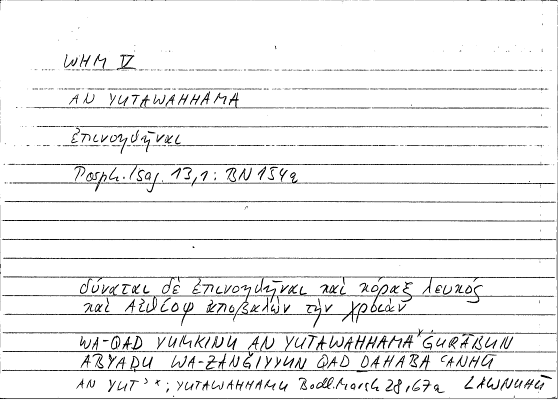 WHM V
AN YUTAWAHHAMA
ἐπινοηθῆναι
Porph. Isag. 13,1: BN 154a
δύναται δὲ ἐπινοηθῆναι καὶ κόραξ λευκός
καὶ Αἰθίοψ ἀποβαλὼν τὴν χροιάν
WA-QAD YUMKINU AN YUTAWAHHAMAˣ ĠURĀBUN
ABYAḌU WA-ZANǦIYYUN QAD ḎAHABA ʿANHŪ
AN YUTˀ ˣ; YUTAWAHHAMU Bodl. Marsh 28,67a LAWNUHŪ